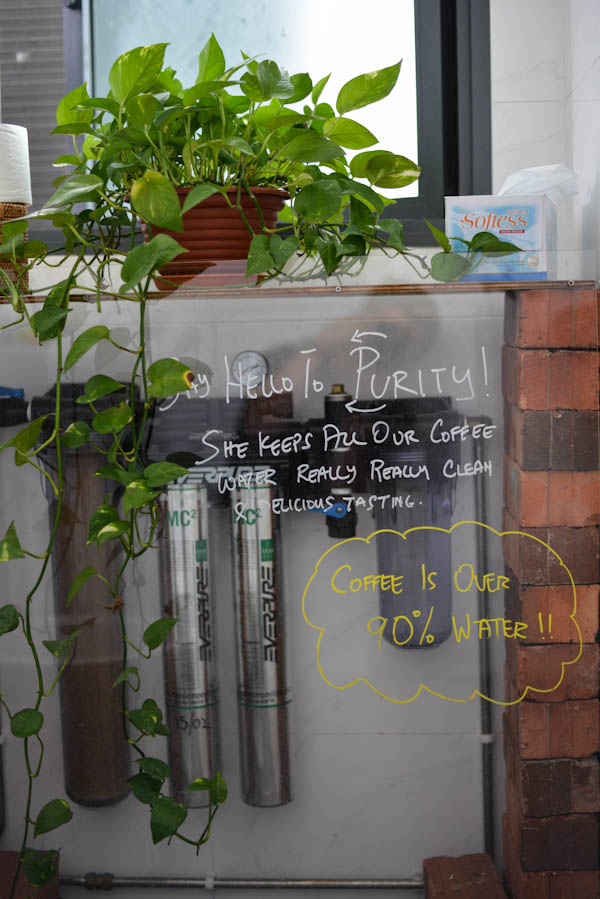 Softess
SAY HELLO TO PURITY!
SHE KEEPS ALL OUR COFFEE
WATER REALLY REALLY CLEAN
& DELICIOUS TASTING.
EVERPURE
MC²
EVERPURE
EVERPURE
COFFEE IS OVER
90% WATER!!
15/02